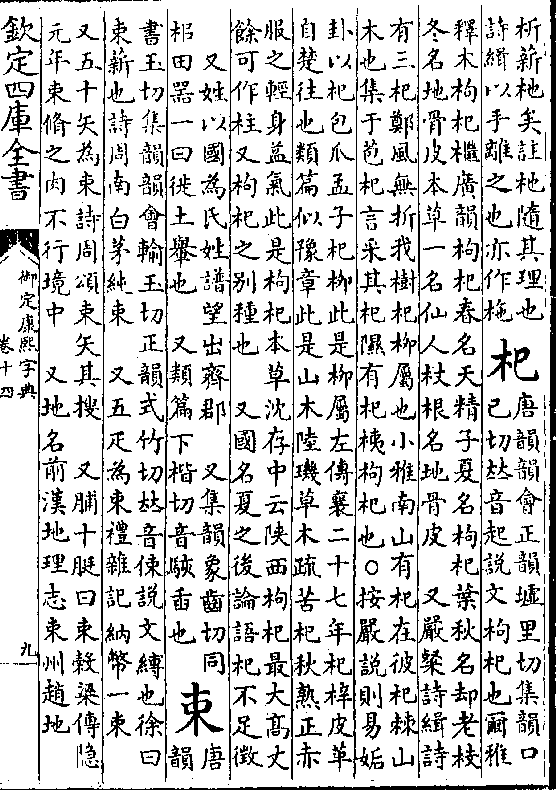 析薪杝矣註杝隨其理也
詩緝以手離之也亦作柂
杞
唐韻韻會正韻墟里切集韻口
己切𠀤音起說文枸杞也爾雅
釋木枸杞檵廣韻枸杞春名天精子夏名枸杞葉秋名却老枝
冬名地骨皮本草一名仙人杖根名地骨皮　又嚴粲詩緝詩
有三杞鄭風無折我樹杞柳屬也小雅南山有杞在彼杞棘山
木也集于苞杞言采其杞隰有杞桋枸杞也○按嚴說則易姤
卦以杞包瓜孟子杞柳此是柳屬左傳襄二十七年杞梓皮革
自楚往也類篇似豫章此是山木陸璣草木疏苦杞秋熟正赤
服之輕身益氣此是枸杞本草沈存中云陜西枸杞最大高丈
餘可作柱又枸杞之別種也　又國名夏之後論語杞不足徵
又姓以國為氏姓譜望出齊郡　又集韻象齒切同
耜田器一曰徙土轝也　又類篇下楷切音駭臿也
束
唐
韻
書玉切集韻韻會輸玉切正韻式竹切𠀤音倲說文縛也徐曰
束薪也詩周南白茅純束　又五疋為束禮雜記納幣一束
又五十矢為束詩周頌束矢其搜　又脯十脡曰束穀梁傳隐
元年束脩之肉不行境中　又地名前漢地理志束州趙地
欽定四庫全書
御定康熙字典
卷十四
九